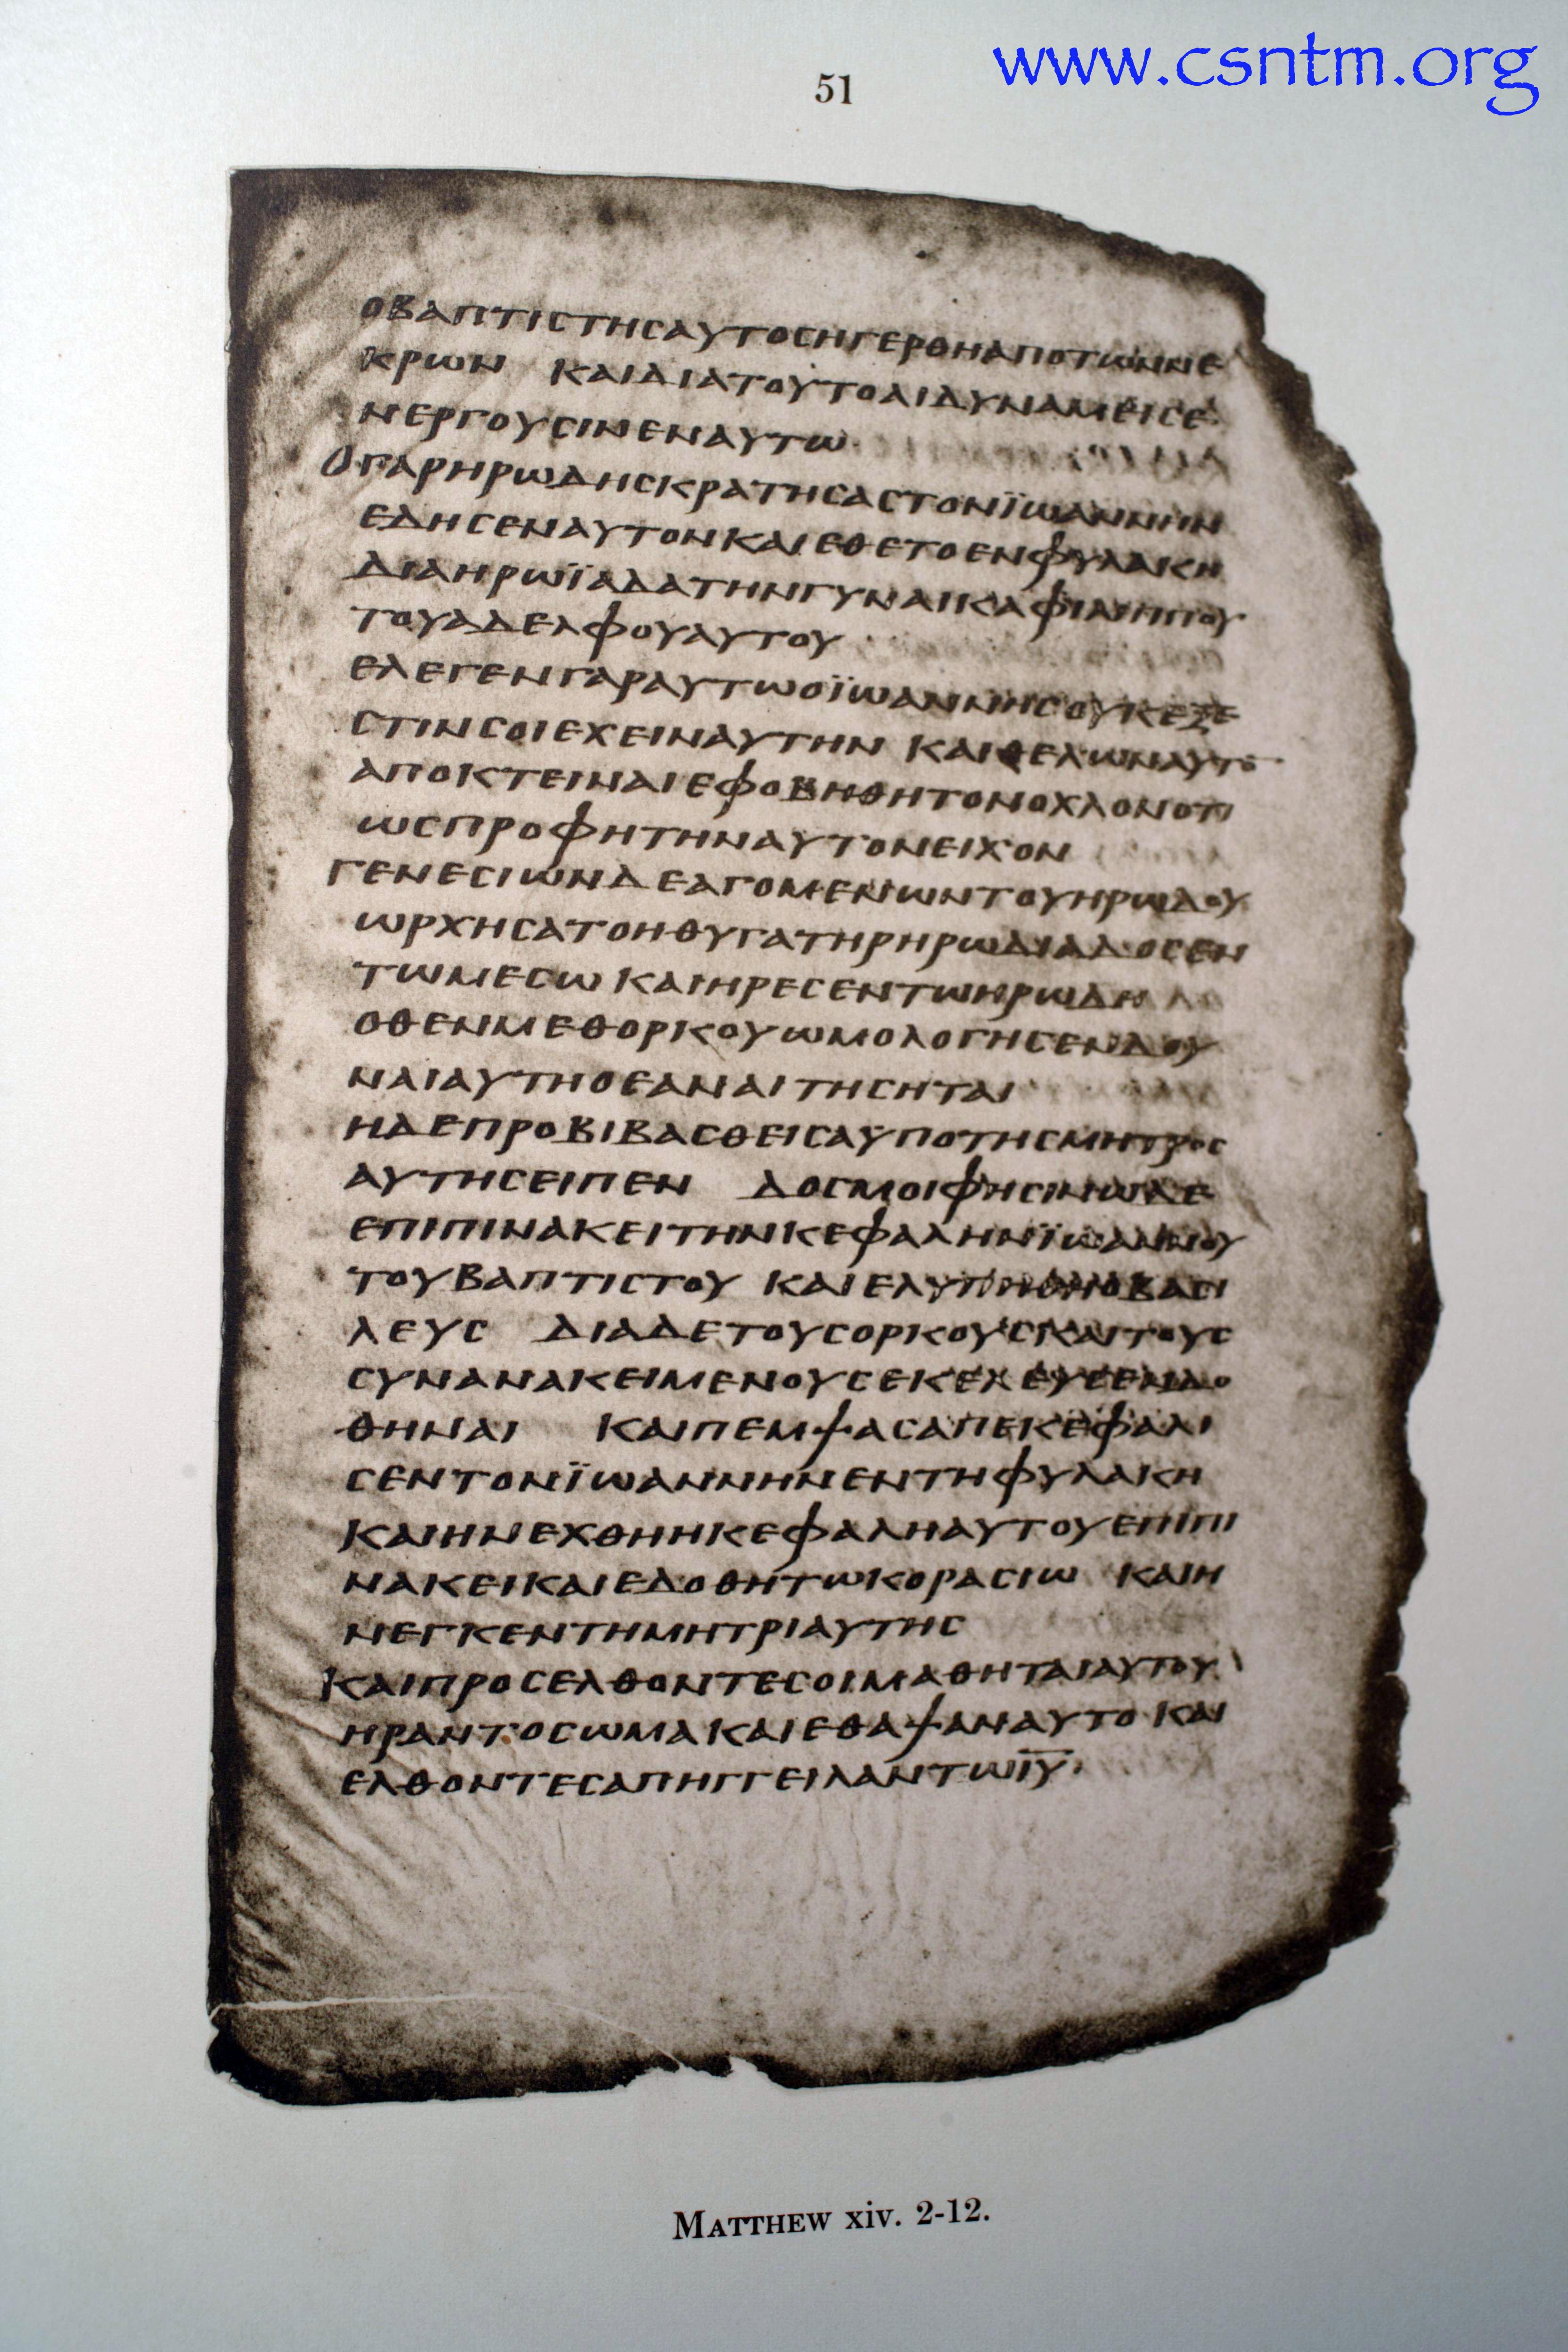 www.csntm.org
51
ΟΒΑΠΤΙCΤΗCΑΥΤΟCΗΓΕΡΘΗΑΠΟΤΩΝΝΕ
ΚΡΩΝ ΚΑΙΔΙΑΤΟΥΤΟΑΙΔΥΝΑΜΕΙCΕ
ΝΕΡΓΟΥCΙΝΕΝΑΥΤΩ
ΟΓΑΡΗΡΩΔΗCΚΡΑΤΗCΑCΤΟΝΪΩΑΝΝΗΝ
ΕΔΗCΕΝΑΥΤΟΝΚΑΙΕΘΕΤΟΕΝΦΥΛΑΚΗ
ΔΙΑΗΡΩΪΑΔΑΤΗΝΓΥΝΑΙΚΑΦΙΛΙΠΠΟΥ
ΤΟΥΑΔΕΛΦΟΥΑΥΤΟΥ
ΕΛΕΓΕΝΓΑΡΑΥΤΩΟΪΩΑΝΝΗCΟΥΚΕΞΕ
CΤΙΝCΟΙΕΧΕΙΝΑΥΤΗΝ ΚΑΙΘΕΛΩΝΑΥΤΟ
ΑΠΟΚΤΕΙΝΑΙΕΦΟΒΗΘΗΤΟΝΟΧΛΟΝΟΤΙ
ΩCΠΡΟΦΗΤΗΝΑΥΤΟΝΕΙΧΟΝ
ΓΕΝΕCΙΩΝΔΕΑΓΟΜΕΝΩΝΤΟΥΗΡΩΔΟΥ
ΩΡΧΗCΑΤΟΗΘΥΓΑΤΗΡΗΡΩΔΙΑΔΟCΕΝ
ΤΩΜΕCΩ ΚΑΙΗΡΕCΕΝΤΩΗΡΩΔΗ
ΟΘΕΝΜΕΘΟΡΚΟΥΩΜΟΛΟΓΗCΕΝΔΟΥ
ΝΑΙΑΥΤΗΟΕΑΝΑΙΤΗCΗΤΑΙ
ΗΔΕΠΡΟΒΙΒΑCΘΕΙCΑΥΠΟΤΗCΜΗΤΡΟC
ΑΥΤΗCΕΙΠΕΝ ΔΟCΜΟΙΦΗCΙΝΩΔΕ
ΕΠΙΠΙΝΑΚΕΙΤΗΝΚΕΦΑΛΗΝΪΩΑΝΝΟΥ
ΤΟΥΒΑΠΤΙCΤΟΥ ΚΑΙΕΛΥΠΗΘΗΟΒΑCΙ
ΛΕΥC ΔΙΑΔΕΤΟΥCΟΡΚΟΥCΚΑΙΤΟΥC
CΥΝΑΝΑΚΕΙΜΕΝΟΥCΕΚΕΛΕΥCΕΝΔΟ
ΘΗΝΑΙ ΚΑΙΠΕΜΨΑCΑΠΕΚΕΦΑΛΙ
CΕΝΤΟΝΪΩΑΝΝΗΝΕΝΤΗΦΥΛΑΚΗ
ΚΑΙΗΝΕΧΘΗΗΚΕΦΑΛΗΑΥΤΟΥΕΠΙΠΙ
ΝΑΚΕΙΚΑΙΕΔΟΘΗΤΩΚΟΡΑCΙΩ ΚΑΙΗ
ΝΕΓΚΕΝΤΗΜΗΤΡΙΑΥΤΗC
ΚΑΙΠΡΟCΕΛΘΟΝΤΕCΟΙΜΑΘΗΤΑΙΑΥΤΟΥ
ΗΡΑΝΤΟCΩΜΑΚΑΙΕΘΑΨΑΝΑΥΤΟ ΚΑΙ
ΕΛΘΟΝΤΕCΑΠΗΓΓΕΙΛΑΝΤΩΙ̅Υ̅
MATTHEW xiv. 2-12.